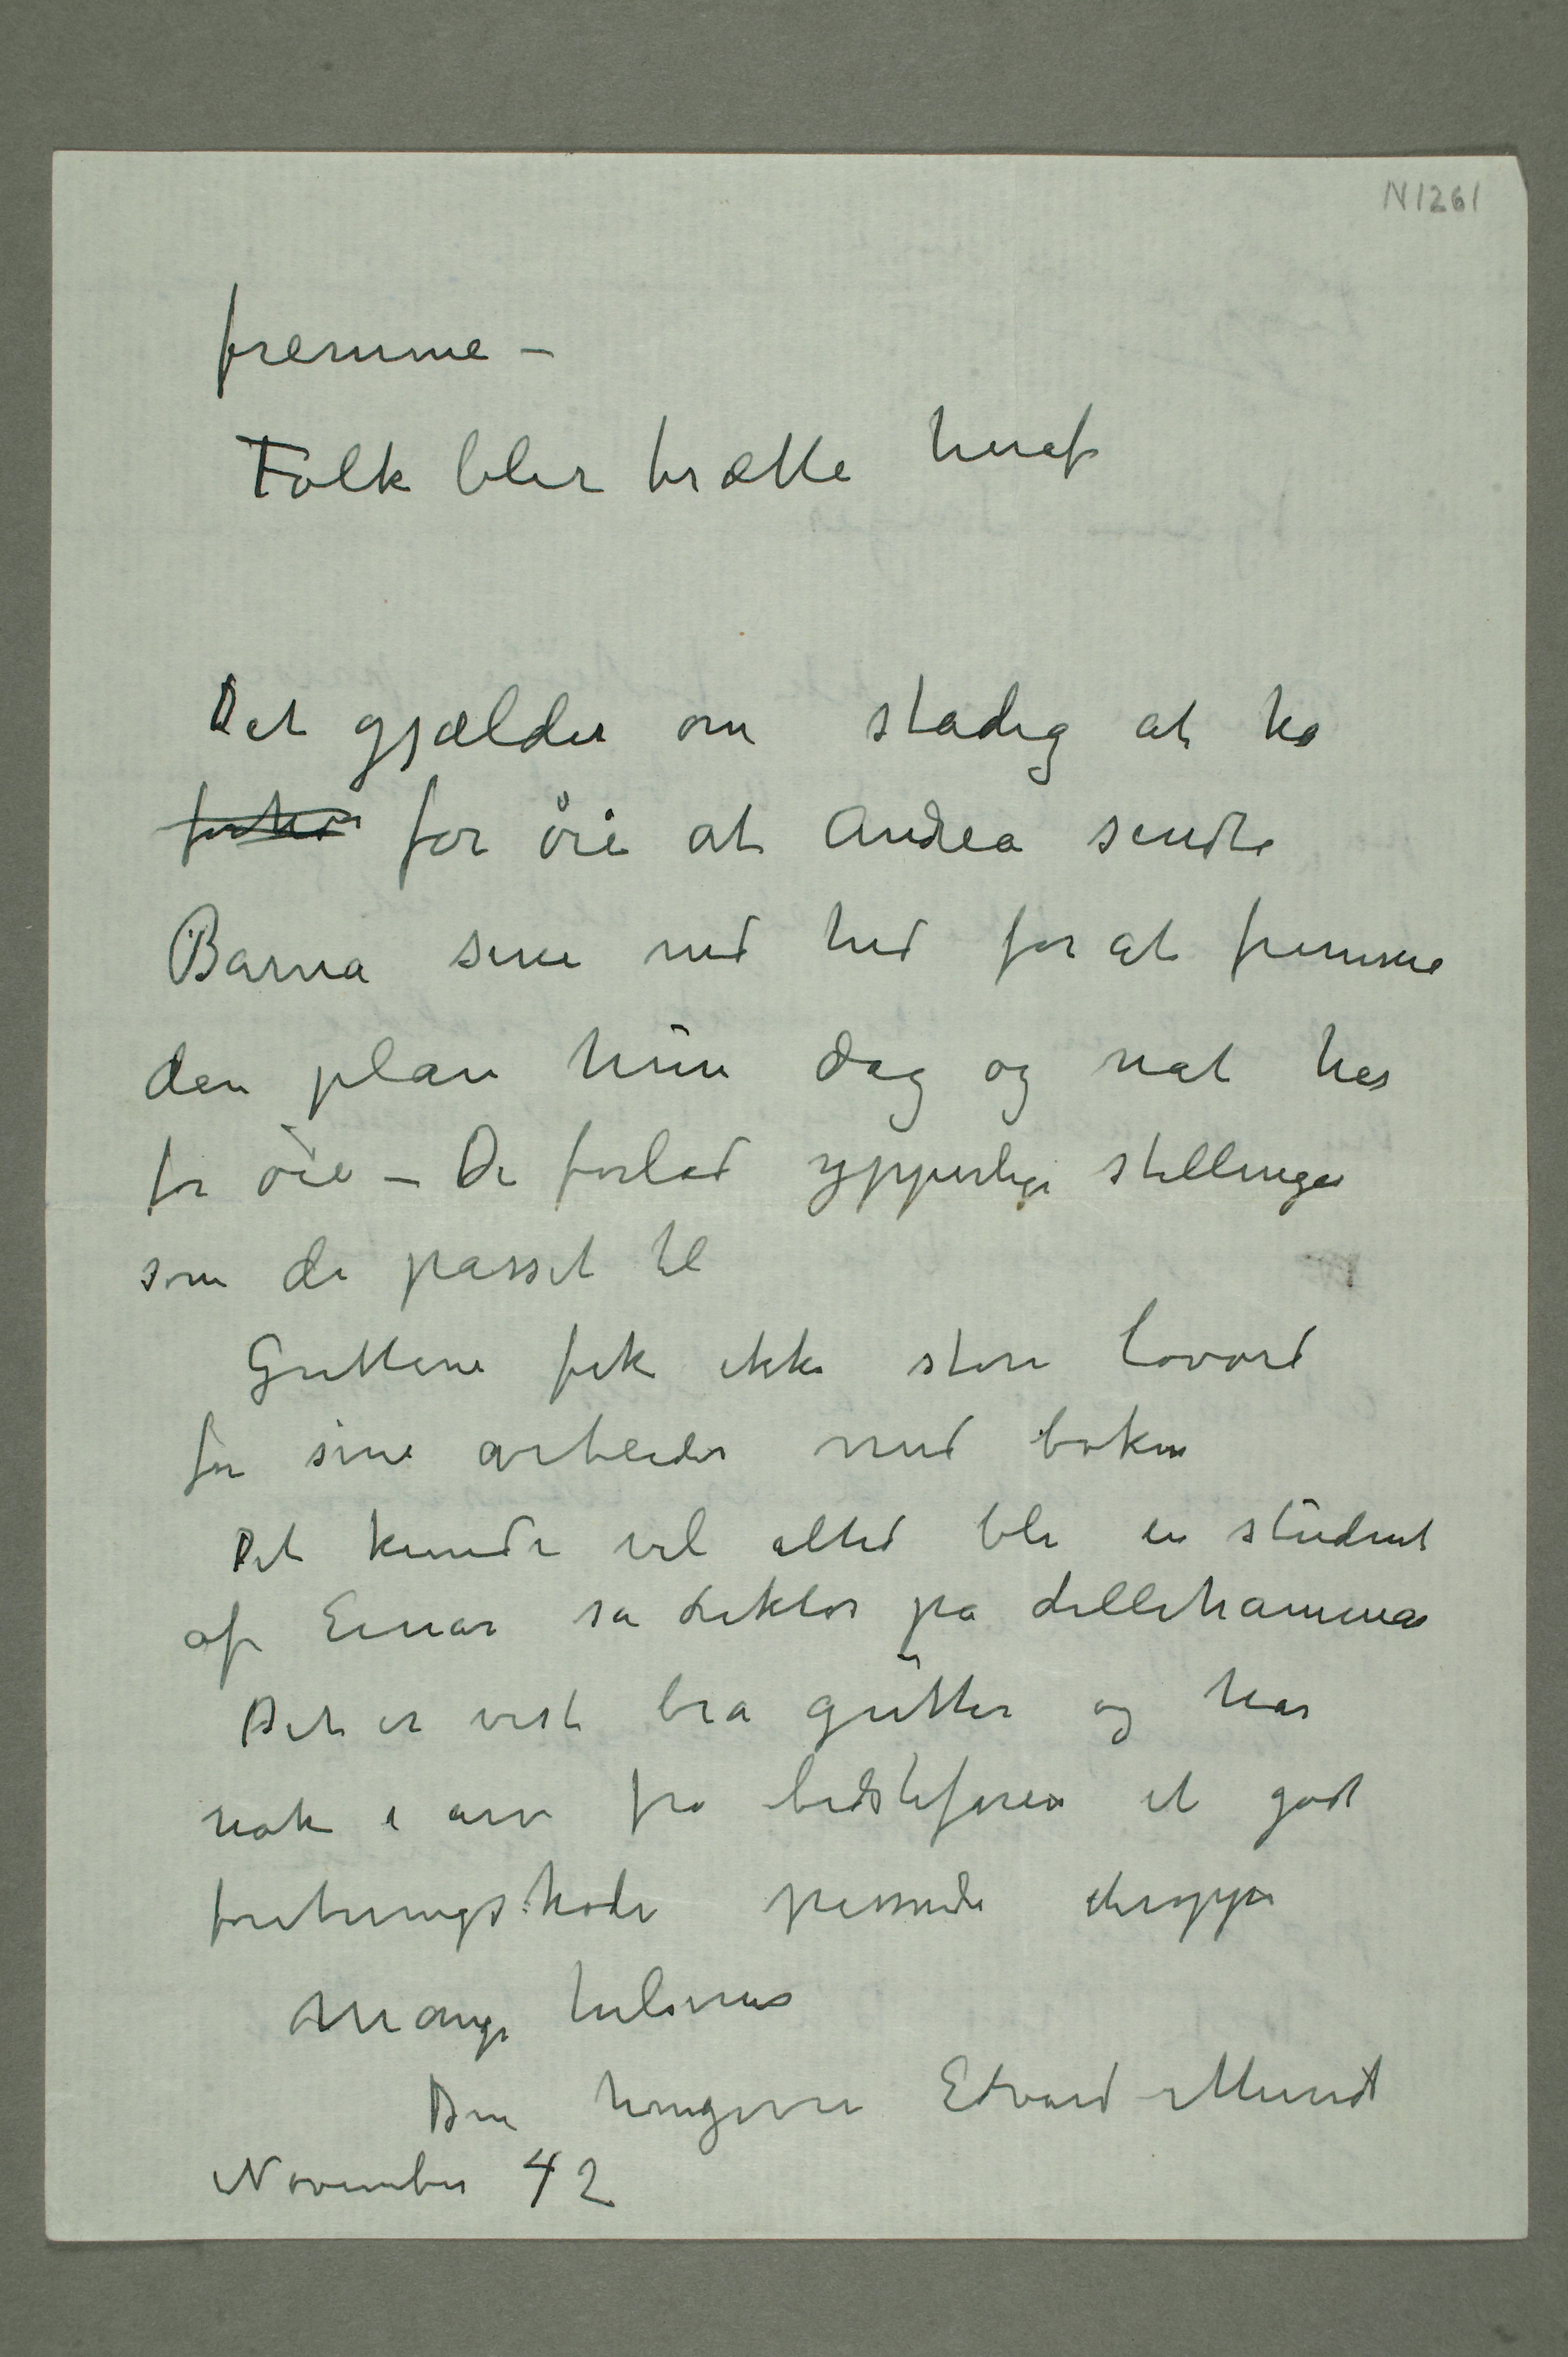 N1261
fremme –
Folk blir trætte heraf
Det gjælder om stadig at ha
for øie at Andrea sendte
Barna sine ned hid for at fremme
den plan hun dag og nat har
for øie – De forlod ypperlige stillinger
som de passet til
Guttene fik ikke store lovord
for sine arbeider med boken
Det kunde vel altid bli en student
af Einar sa Lektor på Lillehammer
Det er vist bra gutter og har
nok i arv fra bedstefaren et godt
forretningshode passende deroppe
Mange hilsener
Din hengivne Edvard Munch
November 42